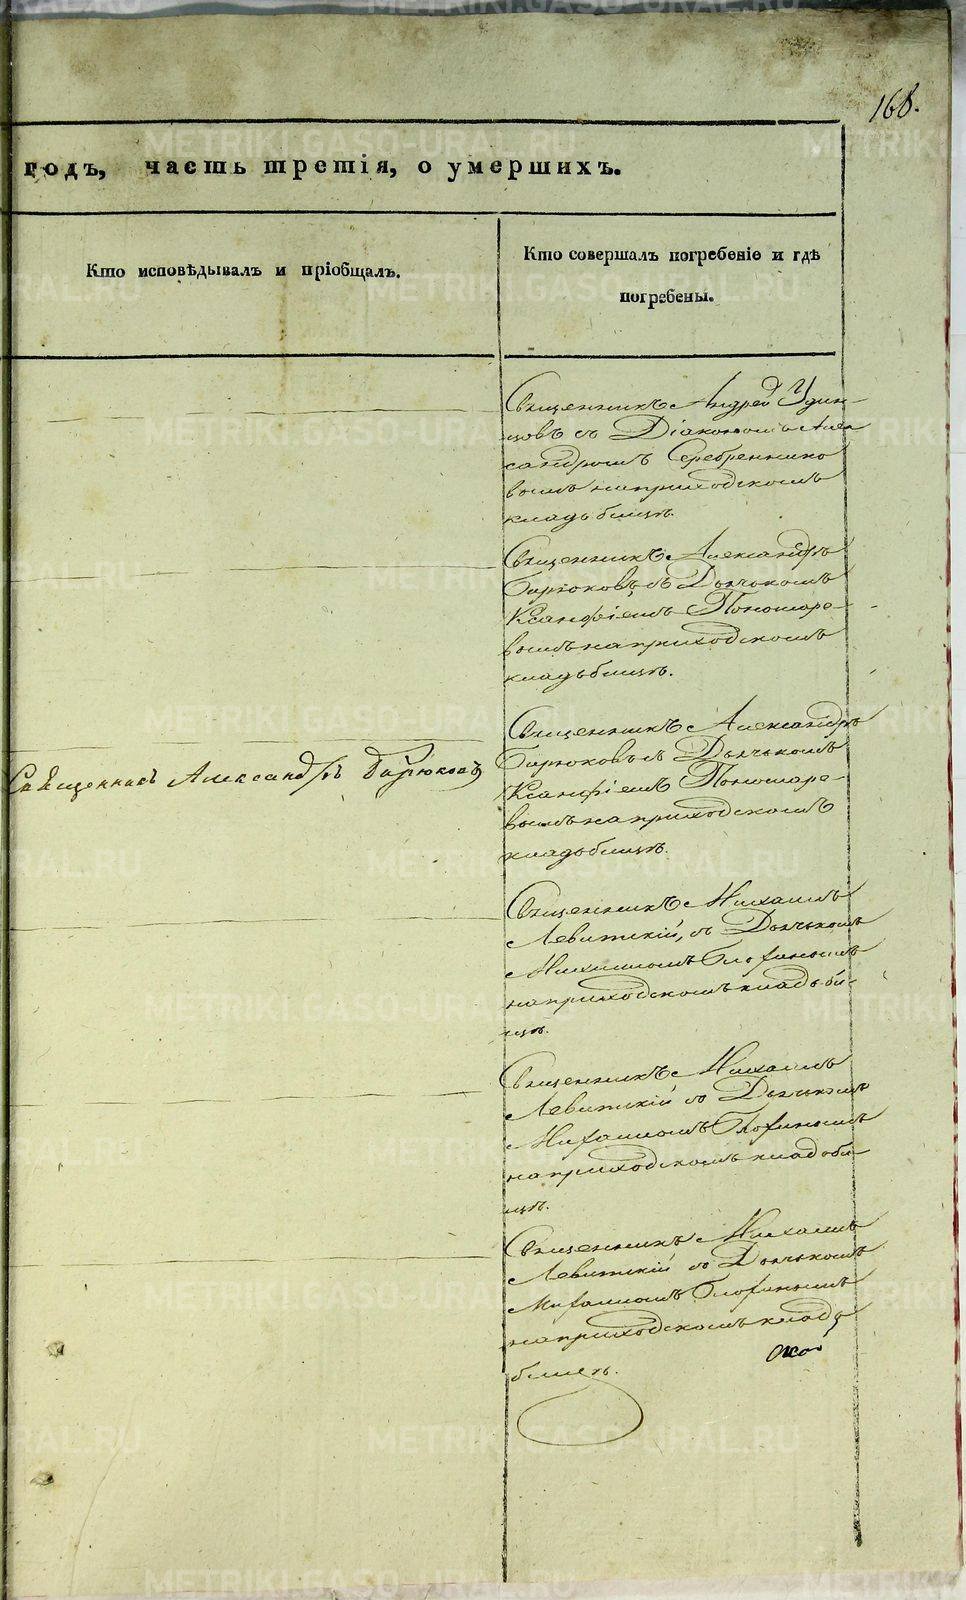 168.
годъ, часть третія, о умершихъ.
Кто исповѣдывалъ и пріобщалъ.
Кто совершалъ погребеніе и гдѣ
погребены.
Священникъ Андрей Удин-
цовъ съ Діакономъ Алек
сандромъ Серебренико
вымъ на приходскомъ
кладьбищѣ.
Священникъ Александръ
Бирюковъ съ Дьячькомъ
Ксанфіемъ Пономаре-
вымъ на приходскомъ
кладьбищѣ.
Священникъ Александръ
Бирюковъ съ Дьячькомъ
Ксанфіемъ Пономаре-
вымъ на приходскомъ
кладьбищѣ.
Священникъ Александръ Бирюковъ
Священникъ Михаилъ
Левитскій, съ Дьячькомъ
Михаиломъ
на приходскомъ кладьби-
щѣ.
Священникъ Михаилъ
Левитскій съ Дьячькомъ
Михаиломъ
на приходскомъ кладьби-
щѣ.
Священникъ Михаилъ
Левитскій съ Дьячькомъ
Михаиломъ
на приходскомъ кладь
бищѣ.
METRIKI.GASO-URAL.RU